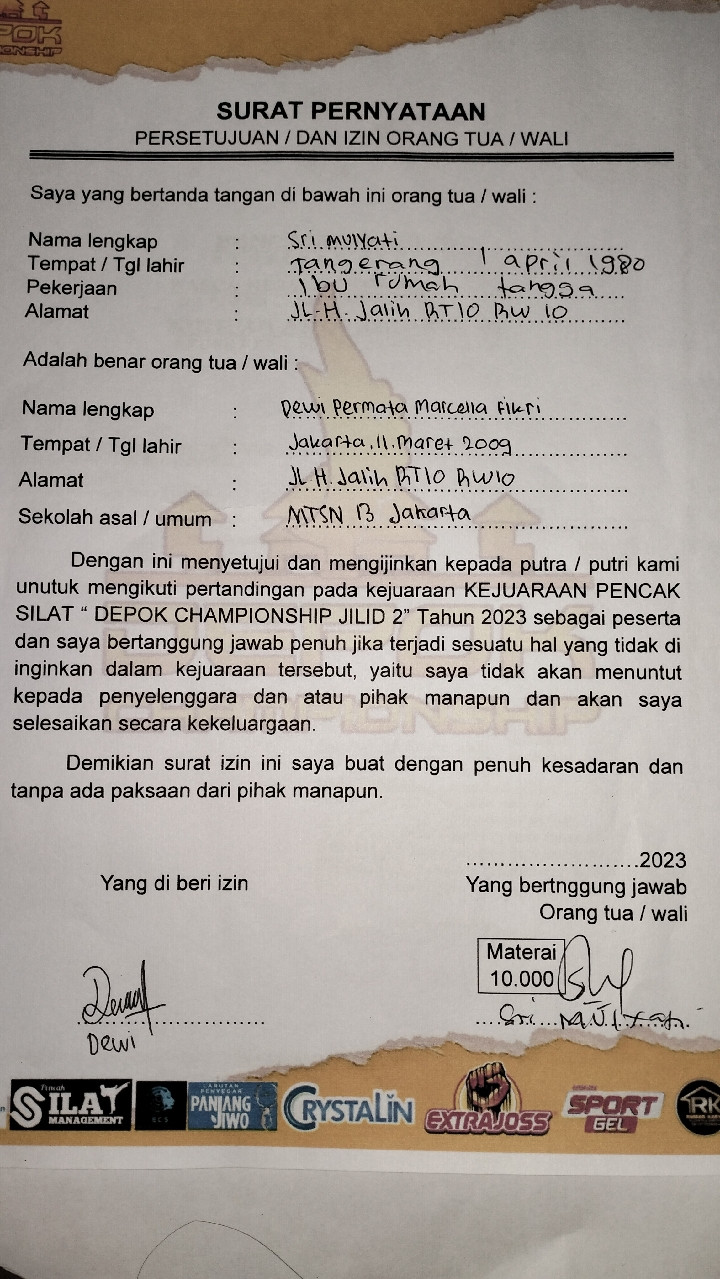 POK
SURAT PERNYATAAN
PERSETUJUAN / DAN IZIN ORANG TUA / WALI
Saya yang bertanda tangan di bawah ini orang tua / wali :
Nama lengkap : Sri mulyati
Tempat / Tgl lahir : Tangerang 1 april 1980
Pekerjaan : Ibu rumah tangga
Alamat : JL. H. Jalih RT10 RW 10
Adalah benar orang tua / wali :
Nama lengkap : Dewi Permata Marcella Fikri
Tempat / Tgl lahir : Jakarta, 11, Maret 2009
Alamat : JL H. Jalih RT10 RW10
Sekolah asal / umum : MTSN 13 Jakarta
Dengan ini menyetujui dan mengijinkan kepada putra / putri kami
unutuk mengikuti pertandingan pada kejuaraan KEJUARAAN PENCAK
SILAT “ DEPOK CHAMPIONSHIP JILID 2” Tahun 2023 sebagai peserta
dan saya bertanggung jawab penuh jika terjadi sesuatu hal yang tidak di
inginkan dalam kejuaraan tersebut, yaitu saya tidak akan menuntut
kepada penyelenggara dan atau pihak manapun dan akan saya
selesaikan secara kekeluargaan.
Demikian surat izin ini saya buat dengan penuh kesadaran dan
tanpa ada paksaan dari pihak manapun.
........................2023
Yang di beri izin
Yang bertnggung jawab
Orang tua / wali
Materai
10.000
Dewi
Sri Mulyati
Pencak SILAT MANAGEMENT
LARUTAN PENYEGAR PANJANG JIWO
CRYSTALIN
EXTRAJOSS
SPORT GEL
RK